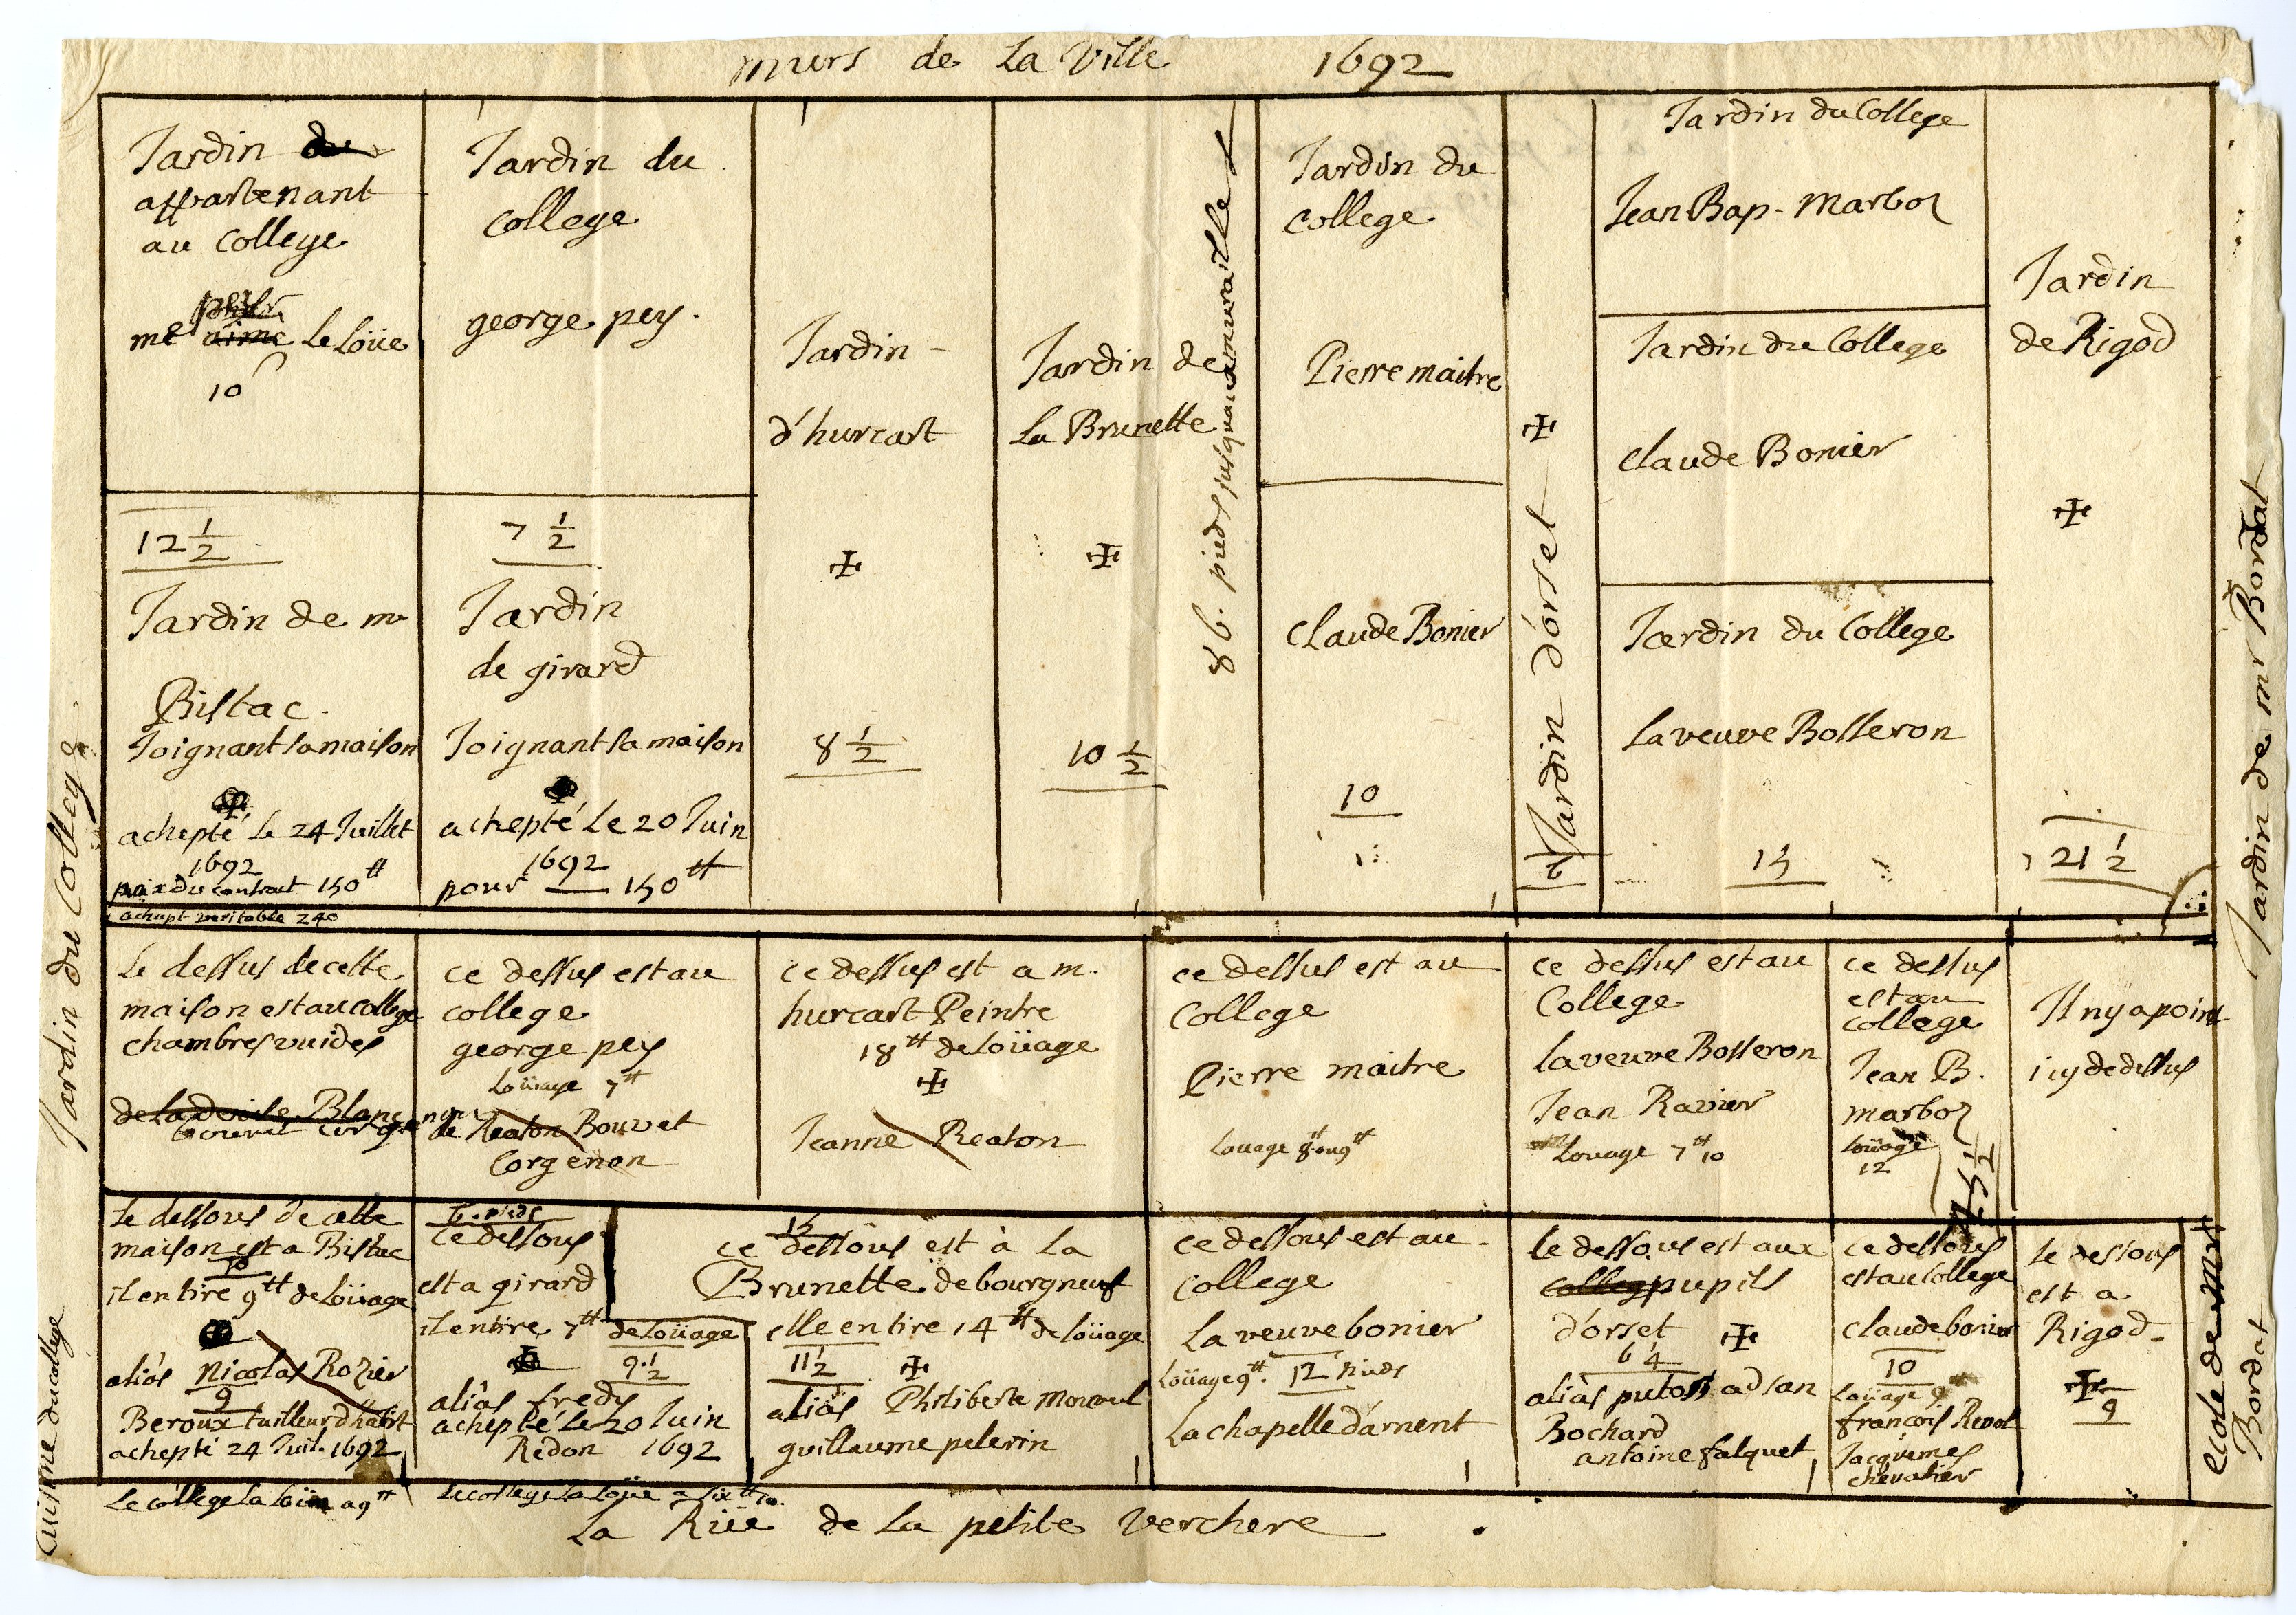 murs de La Ville 1692
Jardin du
appartenant
au College
me Le Loüe
10
12 1/2
Jardin de mr
Bistac.
Joignant sa maison
achepté Le 24 Juillet
1692
prix du contract 150 tt
achapt veritable 240
Jardin du
College
george pey.
7 1/2
Jardin
de girard
Joignant sa maison
achepté Le 20 Juin
1692
pour — 150 tt
Jardin
d'hurcart
8 1/2
Jardin de
La Brunette
10 1/2
86. pieds jusqu'aux murailles
Jardin du
College
Pierre maitre
Claude Bonier
10
Jardin d'orset
Jardin du College
Jean Bap. Marboz
Jardin du College
Claude Bonier
Jardin du College
La veuve Bosseron
15
Jardin
de Rigod
21 1/2
Le dessus de cette
maison est au college
chambres vuides
ce dessus est au
college
george pey
Loüage 7 tt
de Reaton Bouvet
Corgenon
ce dessus est a m.
hurcart Peintre
18 tt de Loüage
Jeanne Reaton
ce dessus est au
College
Pierre maitre
Louage 8 tt ou 9 tt
ce dessus est au
College
La veuve Bosseron
Jean Ravier
Louage 7 tt 10
ce dessus
est au
college
Jean B.
marboz
Loüage
12
Il n'y a point
icy de dessus
Le dessous de cette
maison est a Bistac
10
il en tire 9 tt de Loüage
aliàs Nicolas Rozier
9
Beroux tailleur d'habit
achepté 24 Juil. 1692
Le college La Loüe a 9 tt
ce dessous
est a girard
il en tire 7 tt de Loüage
9 1/2
aliàs fredy
achepté Le 20 Juin
Redon 1692
Le college La Loüe a six tt 10.
15
ce dessous est à La
Brunette de bourgneuf
elle en tire 14 tt de Loüage
11 1/2
aliàs Philiberte
guillaume pelerin
ce dessous est au
College
La veuve bonier
Loüage 9 tt. 12 pieds
La chapelle d'arnent
Le dessous est aux
colleg pupils
d'orset
6 1/4
aliàs
Bochard
antoine falquet
ce dessous
est au College
Claude bonier
10
Loüage 9 tt
françois Revol
Jacquemes
chevalier
Le dessous
est a
Rigod.
9
La Rüe de La petite Verchere
Jardin du College
Cuisine du college
Jardin de mr Bordat
Ecole de Mr
Bordat